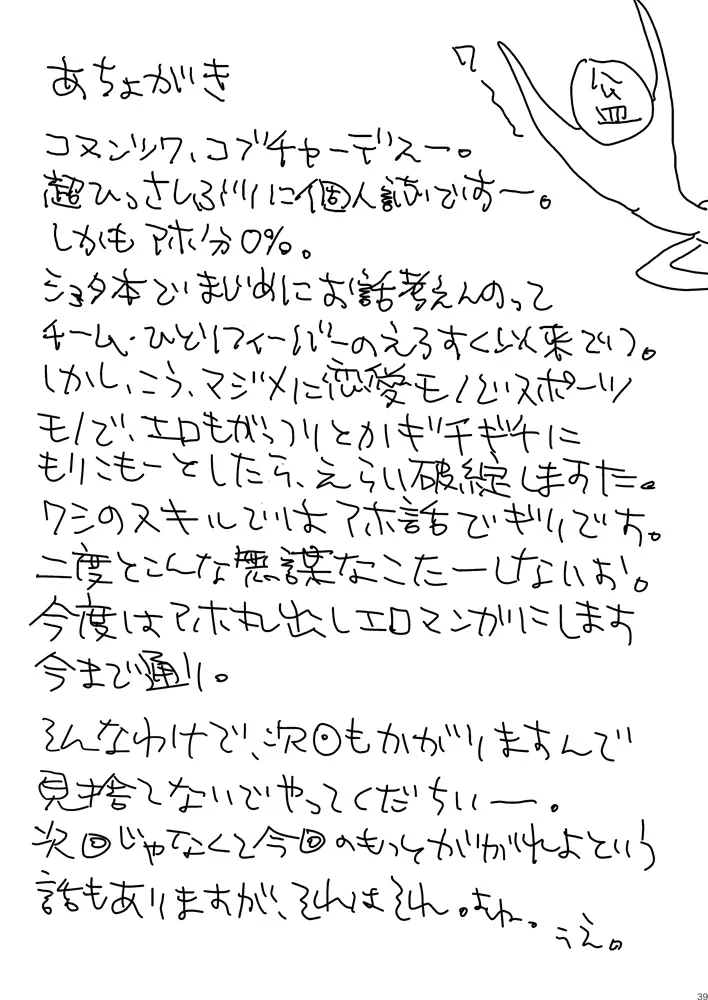 あちょがき
コヌンツワ、コブチャーデえー。
超ひっさしぶりに個人誌ですー。
しかもアホ分0%。
ショタ本でまじめにお話考えんのって
チーム・ひとりフィーバーのえろすく以来でつ。
しかし、こう、マジメに恋愛モノでスポーツ
モノで、エロもがっつりとかギチギチに
もりこもーとしたら、えらい破綻しますた。
ワシのスキルではアホ話でぎりです。
二度とこんな無謀なこたーしないお。
今度はアホ丸出しエロマンガにします
今まで通り。
そんなわけで、次回もがんがりますんで
見捨てないでやってくだちいー。
次回じゃなくて今回のもっとがんがれよという
話もありますが、それはそれ。よね。
こえ。
39